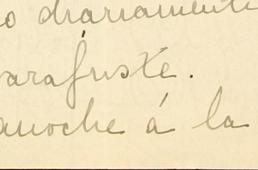 o diariamente
parafuste.
anoche á la